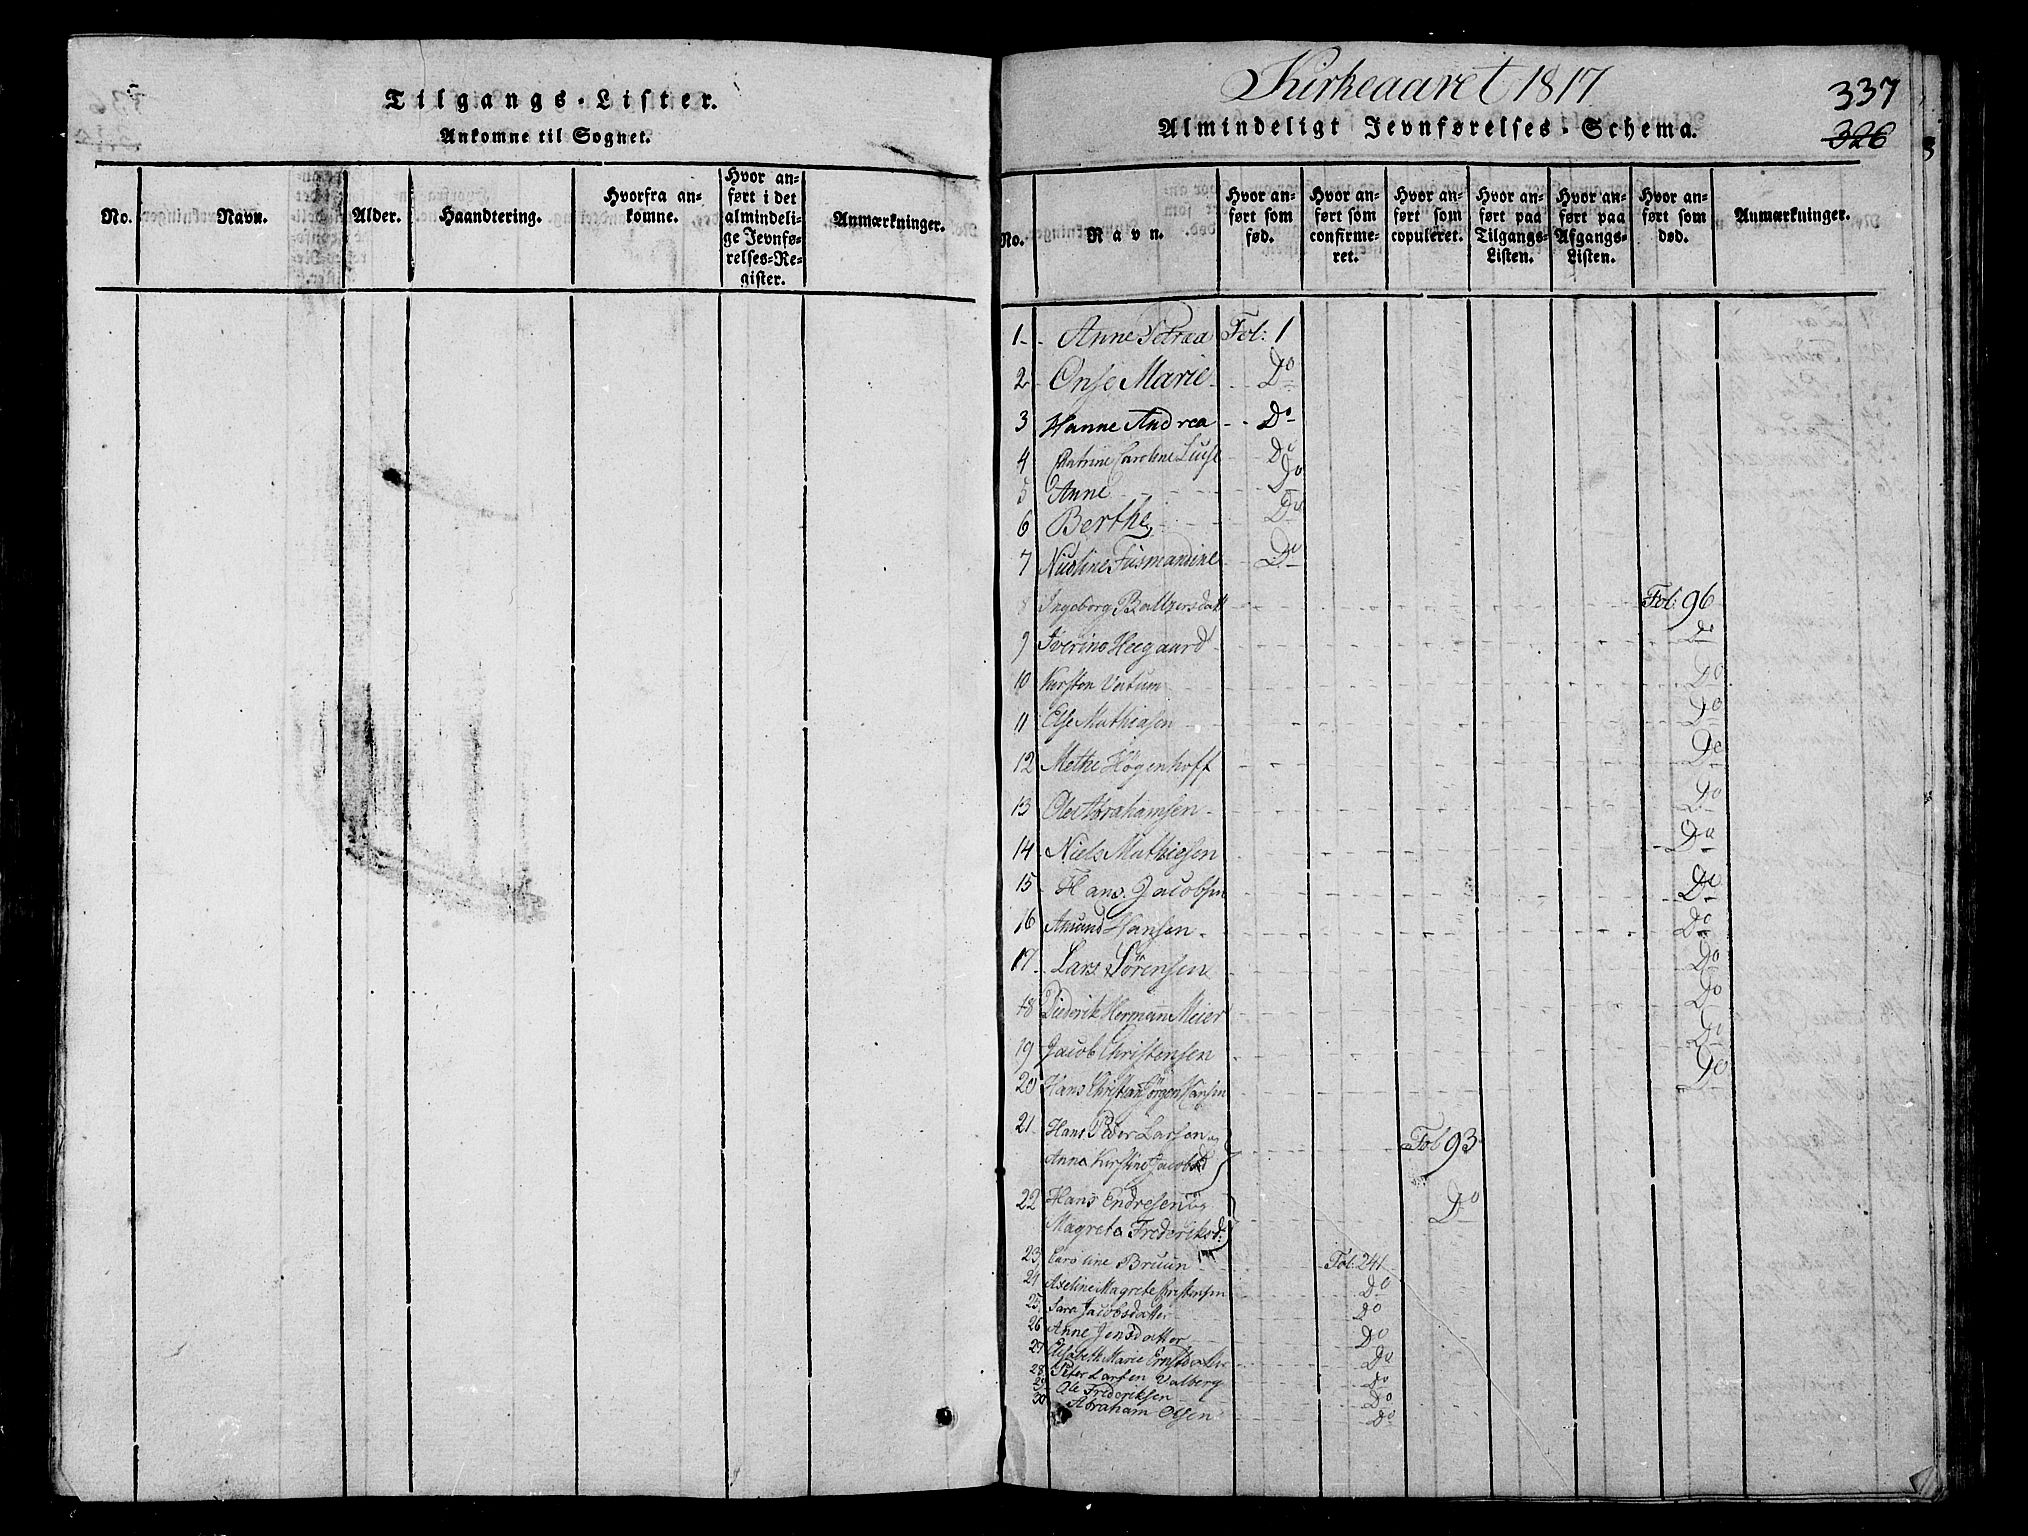 Tilgangs-Lister.
Ankomne til Sognet.
No.
Navn.
Alder.
Haandtering.
Hvorfra an-
komne.
Hvor an-
ført i det
almindeli-
ge Jevnfø-
relses-Re-
gister.
Anmærkninger.
Kirkeaaret 1817
337
Almindeligt Jevnførelses-Schema.
326
No.
Navn.
Hvor an-
ført som
fød.
Hvor an-
ført som
confirme-
ret.
Hvor an-
ført som
copuleret.
Hvor an-
ført paa
Tilgangs-
Listen.
Hvor an-
ført paa
Afgangs-
Listen.
Hvor an-
ført som
død.
Anmærkninger.
1 Anne Petrea Fol: 1
2 Onse Marie Do
3 Hanne Andrea Do
4 Catrine Caroline Luise Do
5 Anne Do
6 Berthe Do
7 Do
8 Ingeborg Baltzersdatt Fol: 96
9 Iverine Heegaard Do
10 Kirsten Vatum Do
11 Else Mathiasen Do
12 Methe Høgenhoff Do
13 Ole Abrahamsen Do
14 Niels Mathiesen Do
15 Hans Jacobsen Do
16 Amund Hansen Do
17 Lars Sørensen Do
18 Diederik Hermann Meier Do
19 Jacob Christensen Do
20 Hans Christian Jørgen Hansen Do
21 Hans Peder Larsen og
Anne Kirstine Jacobsd Fol 93
22 Hans Endresen og
Magreta Frederiksd: Do
23 Caroline Bruun Fol: 241
24 Axeline Magrete Christensen Do
25 Sara Jacobsdatter Do
26 Anne Jensdatter Do
27 Elisabeth Marie Ernstdatter Do
28 Peter Larsen Valberg Do
29 Ole Frederiksen Do
30 Abraham Olsen Do